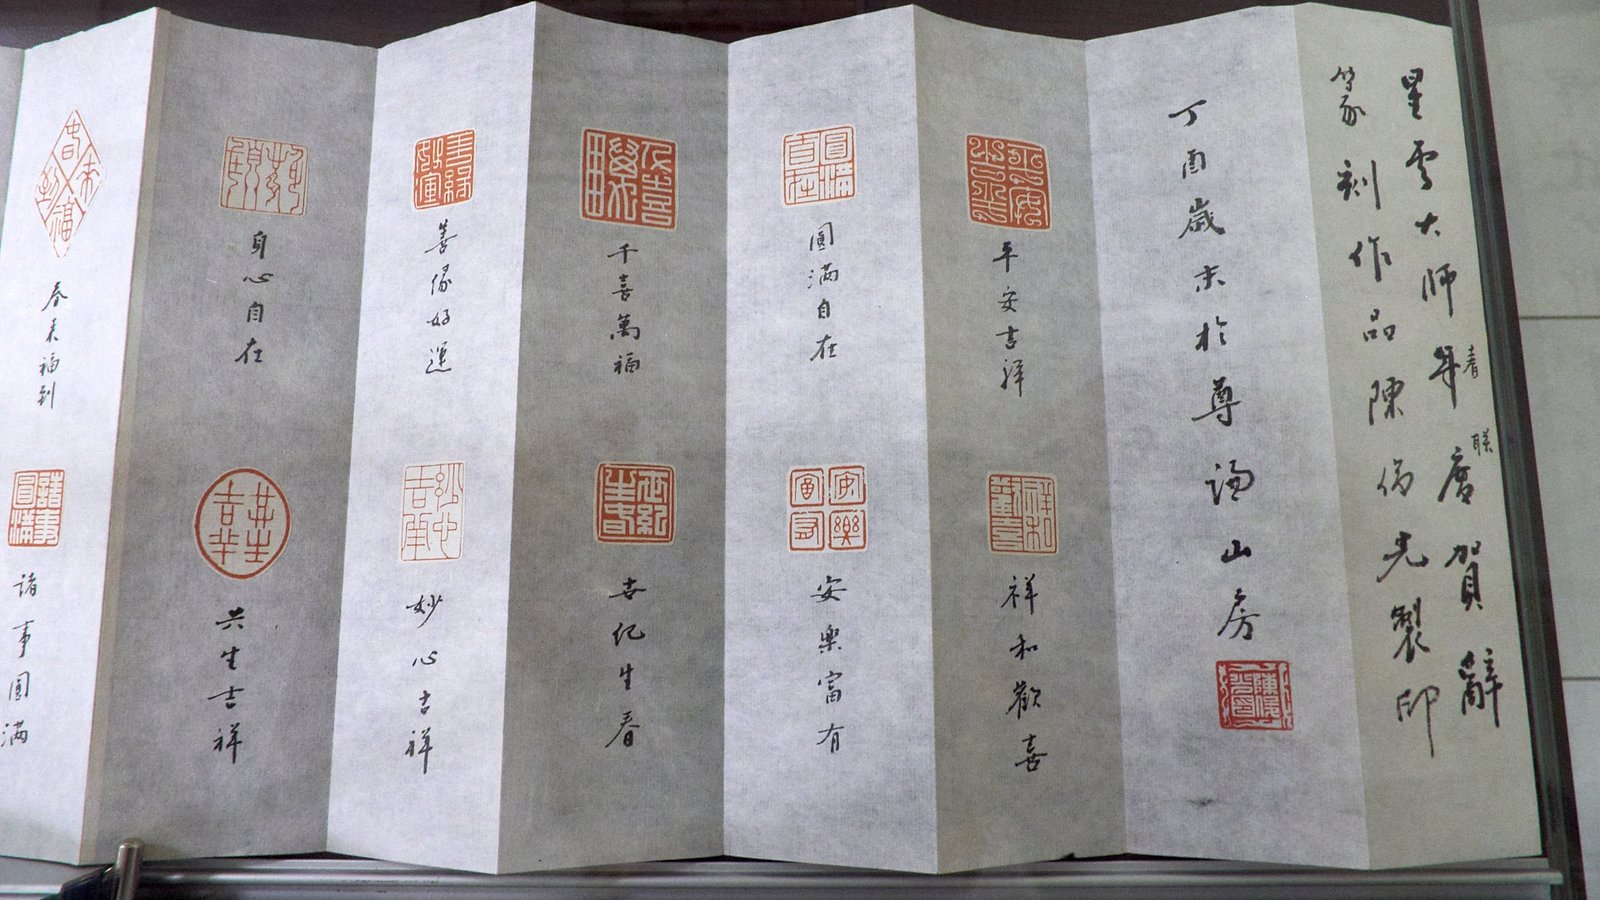 星雲大師年度賀辭
春聯
篆刻作品陳俊光製印
丁酉歲末於尊山房
平安吉祥
祥和歡喜
圓滿自在
安樂富有
千喜萬福
世紀生春
善緣好運
妙心吉祥
身心自在
共生吉祥
春來福到
諸事圓滿